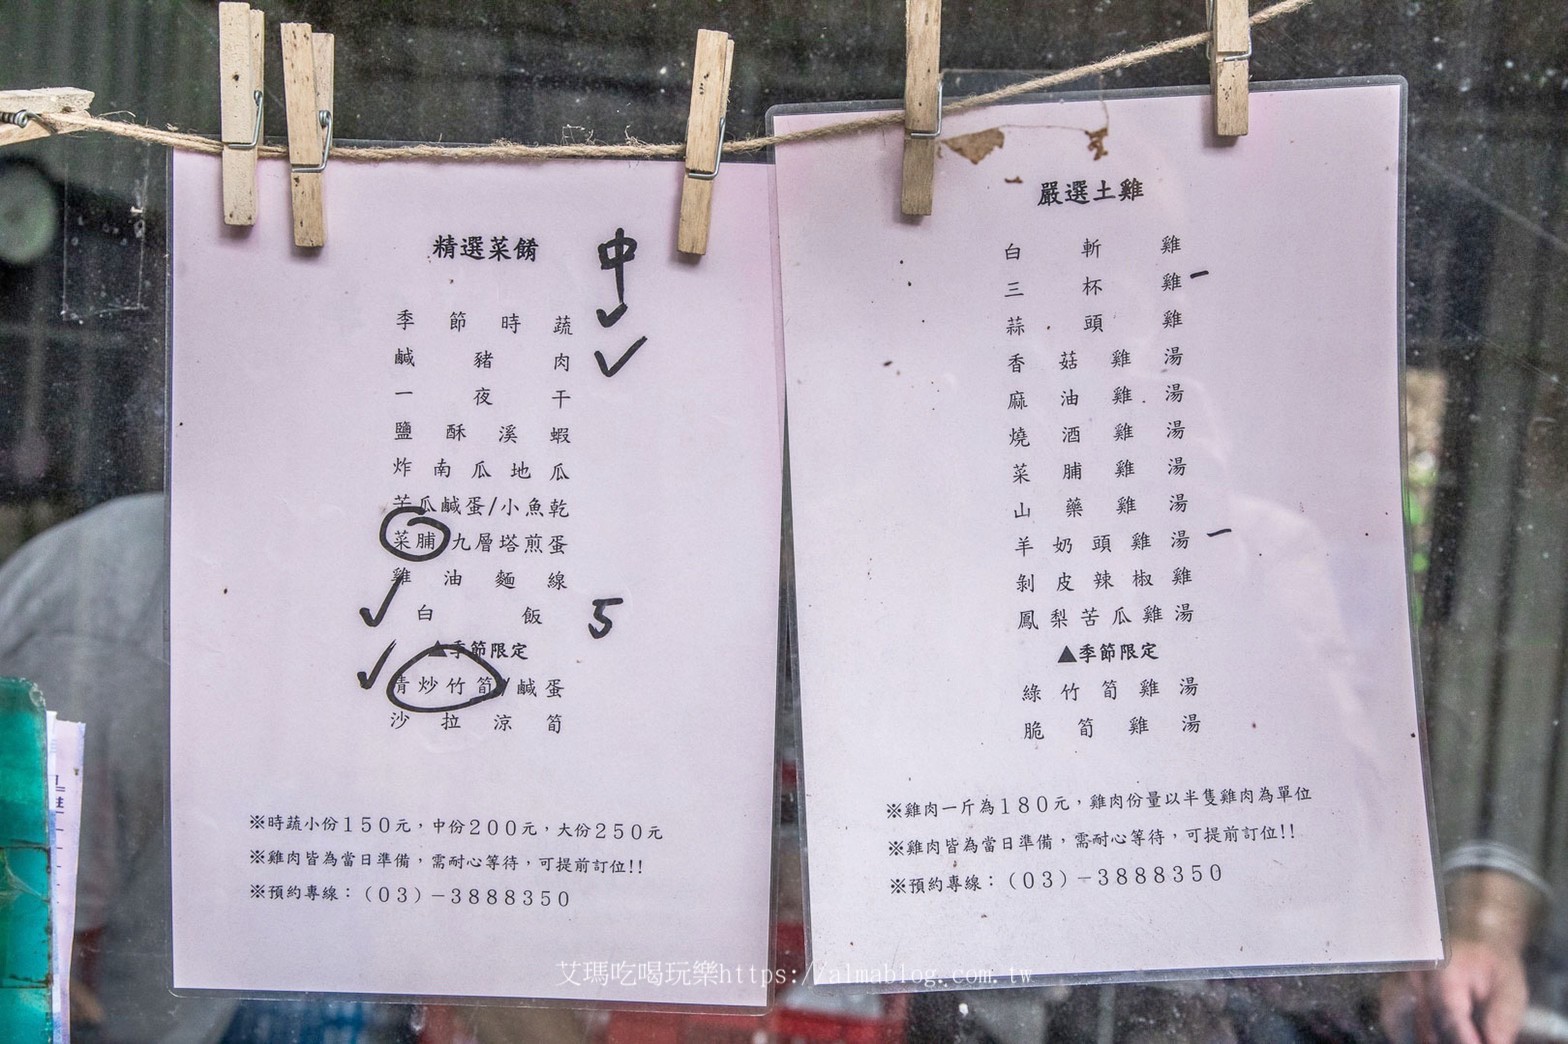 精選菜餚 中
季節時蔬 ✓
鹹豬肉 ✓
一夜干
鹽酥溪蝦
炸南瓜地瓜
苦瓜鹹蛋/小魚乾
菜脯九層塔煎蛋
雞油麵線
✓ 白飯 5
▲季節限定
✓ 清炒竹筍/鹹蛋
沙拉涼筍
※時蔬小份150元,中份200元,大份250元
※雞肉皆為當日準備,需耐心等待,可提前訂位!!
※預約專線:(03)-3888350
嚴選土雞
白斬雞
三杯雞 一
蒜頭雞
香菇雞湯
麻油雞湯
燒酒雞湯
菜脯雞湯
山藥雞湯
羊奶頭雞湯 一
剝皮辣椒雞
鳳梨苦瓜雞湯
▲季節限定
綠竹筍雞湯
脆筍雞湯
※雞肉一斤為180元,雞肉份量以半隻雞肉為單位
※雞肉皆為當日準備,需耐心等待,可提前訂位!!
※預約專線:(03)-3888350
艾瑪吃喝玩樂https://almablog.com.tw